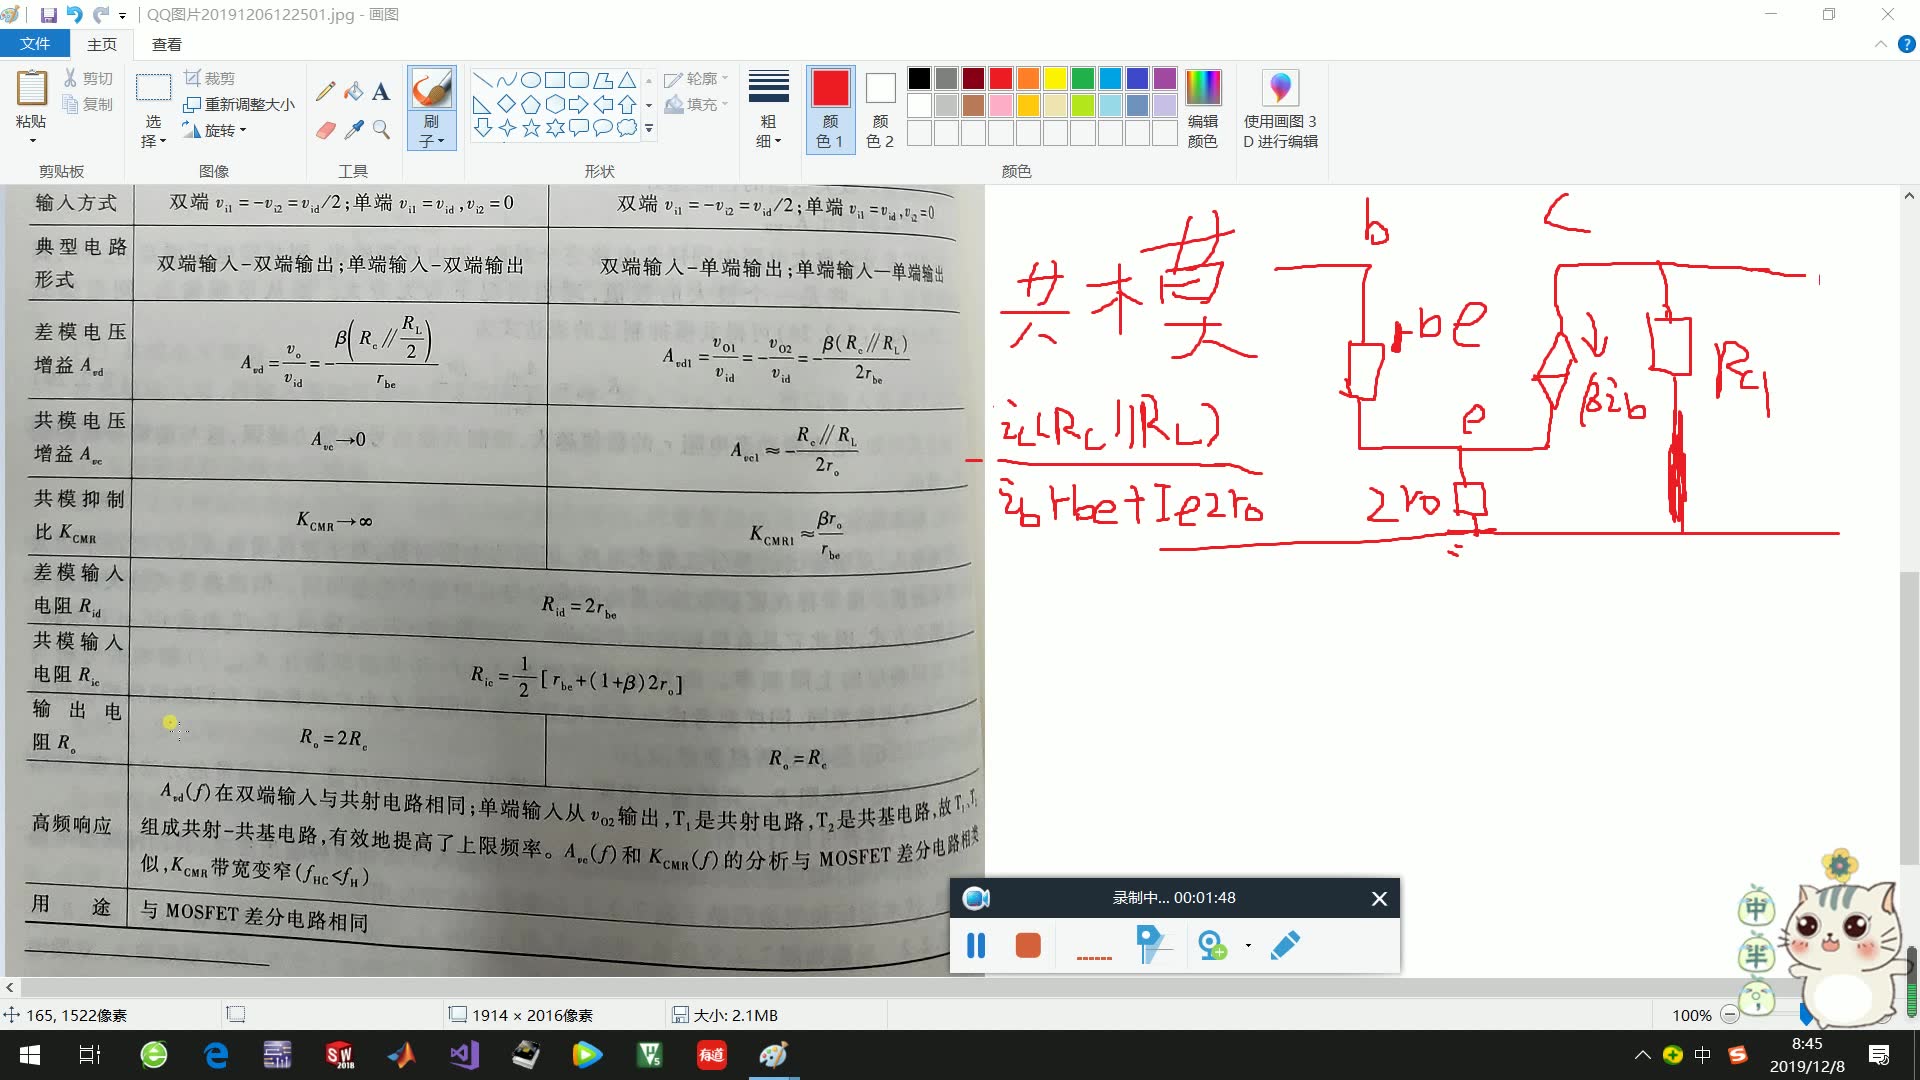 QQ图片20191206122501.jpg - 画图
文件 主页 查看
粘贴 剪切 复制 剪贴板
选择 裁剪 重新调整大小 旋转 图像
工具
刷子
轮廓 填充 形状
粗细
颜色 1 颜色 2 编辑颜色 颜色
使用画图 3D 进行编辑
输入方式 双端 v_i1 = -v_i2 = v_id/2;单端 v_i1 = v_id, v_i2 = 0 双端 v_i1 = -v_i2 = v_id/2;单端 v_i1 = v_id, v_i2 = 0
典型电路形式 双端输入-双端输出;单端输入-双端输出 双端输入-单端输出;单端输入—单端输出
差模电压增益 A_vd A_vd = v_o/v_id = -β(R_c∥R_L/2)/r_be A_vd1 = v_O1/v_id = -v_O2/v_id = -β(R_c∥R_L)/2r_be
共模电压增益 A_vc A_vc→0 A_vc1 ≈ -R_c∥R_L/2r_o
共模抑制比 K_CMR K_CMR→∞ K_CMR1 ≈ βr_o/r_be
差模输入电阻 R_id R_id = 2r_be
共模输入电阻 R_ic R_ic = 1/2[r_be+(1+β)2r_o]
输出电阻 R_o R_o = 2R_c R_o = R_c
高频响应 A_vd(f)在双端输入与共射电路相同;单端输入从 v_O2 输出,T_1 是共射电路,T_2 是共基电路,故 T_1、T_2
组成共射-共基电路,有效地提高了上限频率。A_vc(f)和 K_CMR(f)的分析与 MOSFET 差分电路相类
似,K_CMR 带宽变窄(f_HC<f_H)
用途 与 MOSFET 差分电路相同
共模
b
c
rbe
βib
Rc1
e
2ro
ic(Rc||RL)
ibrbe+Ie2ro
录制中... 00:01:48
中
半
165, 1522像素
1914 × 2016像素
大小: 2.1MB
100%
SW 2018
有道
中
8:45
2019/12/8